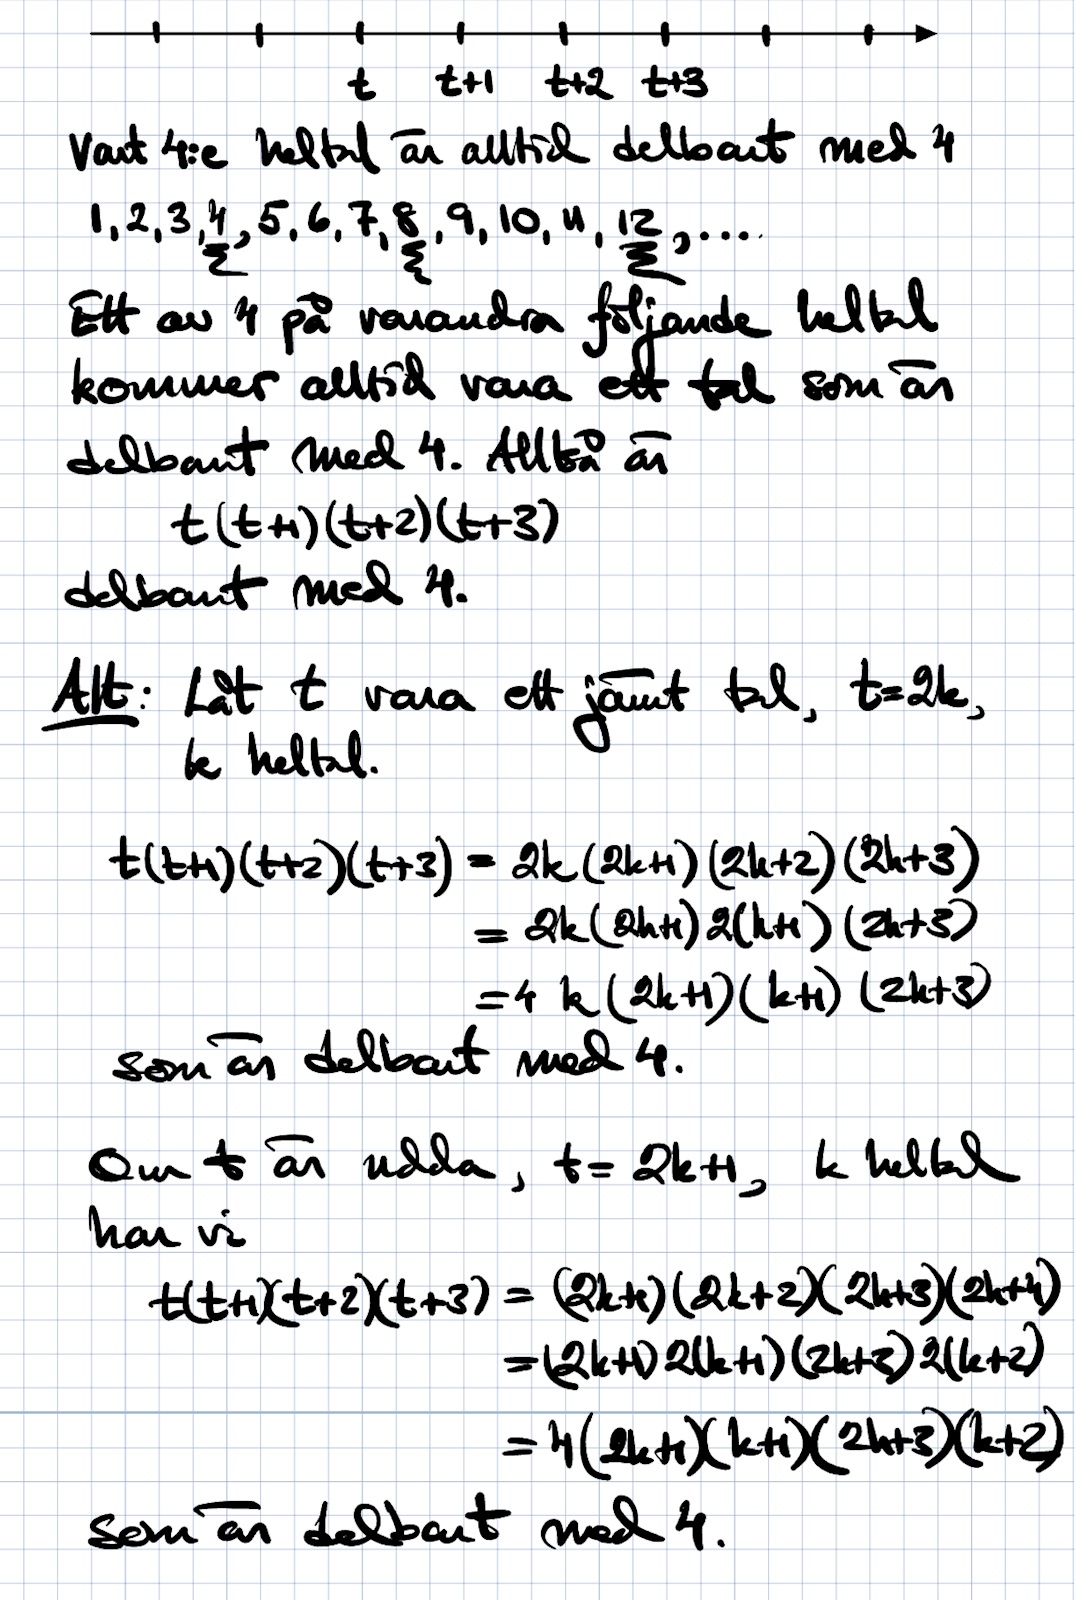 t t+1 t+2 t+3
Vart 4:e heltal är alltid delbart med 4
1, 2, 3, 4, 5, 6, 7, 8, 9, 10, 11, 12, ....
Ett av 4 på varandra följande heltal
kommer alltid vara ett tal som är
delbart med 4. Alltså är
t(t+1)(t+2)(t+3)
delbart med 4.
Alt: Låt t vara ett jämt tal, t=2k,
k heltal.
t(t+1)(t+2)(t+3) = 2k(2k+1)(2k+2)(2k+3)
= 2k(2k+1)2(k+1)(2k+3)
=4 k(2k+1)(k+1)(2k+3)
som är delbart med 4.
Om t är udda, t= 2k+1, k heltal
har vi
t(t+1)(t+2)(t+3) = (2k+1)(2k+2)(2k+3)(2k+4)
=(2k+1)2(k+1)(2k+3)2(k+2)
=4(2k+1)(k+1)(2k+3)(k+2)
som är delbart med 4.